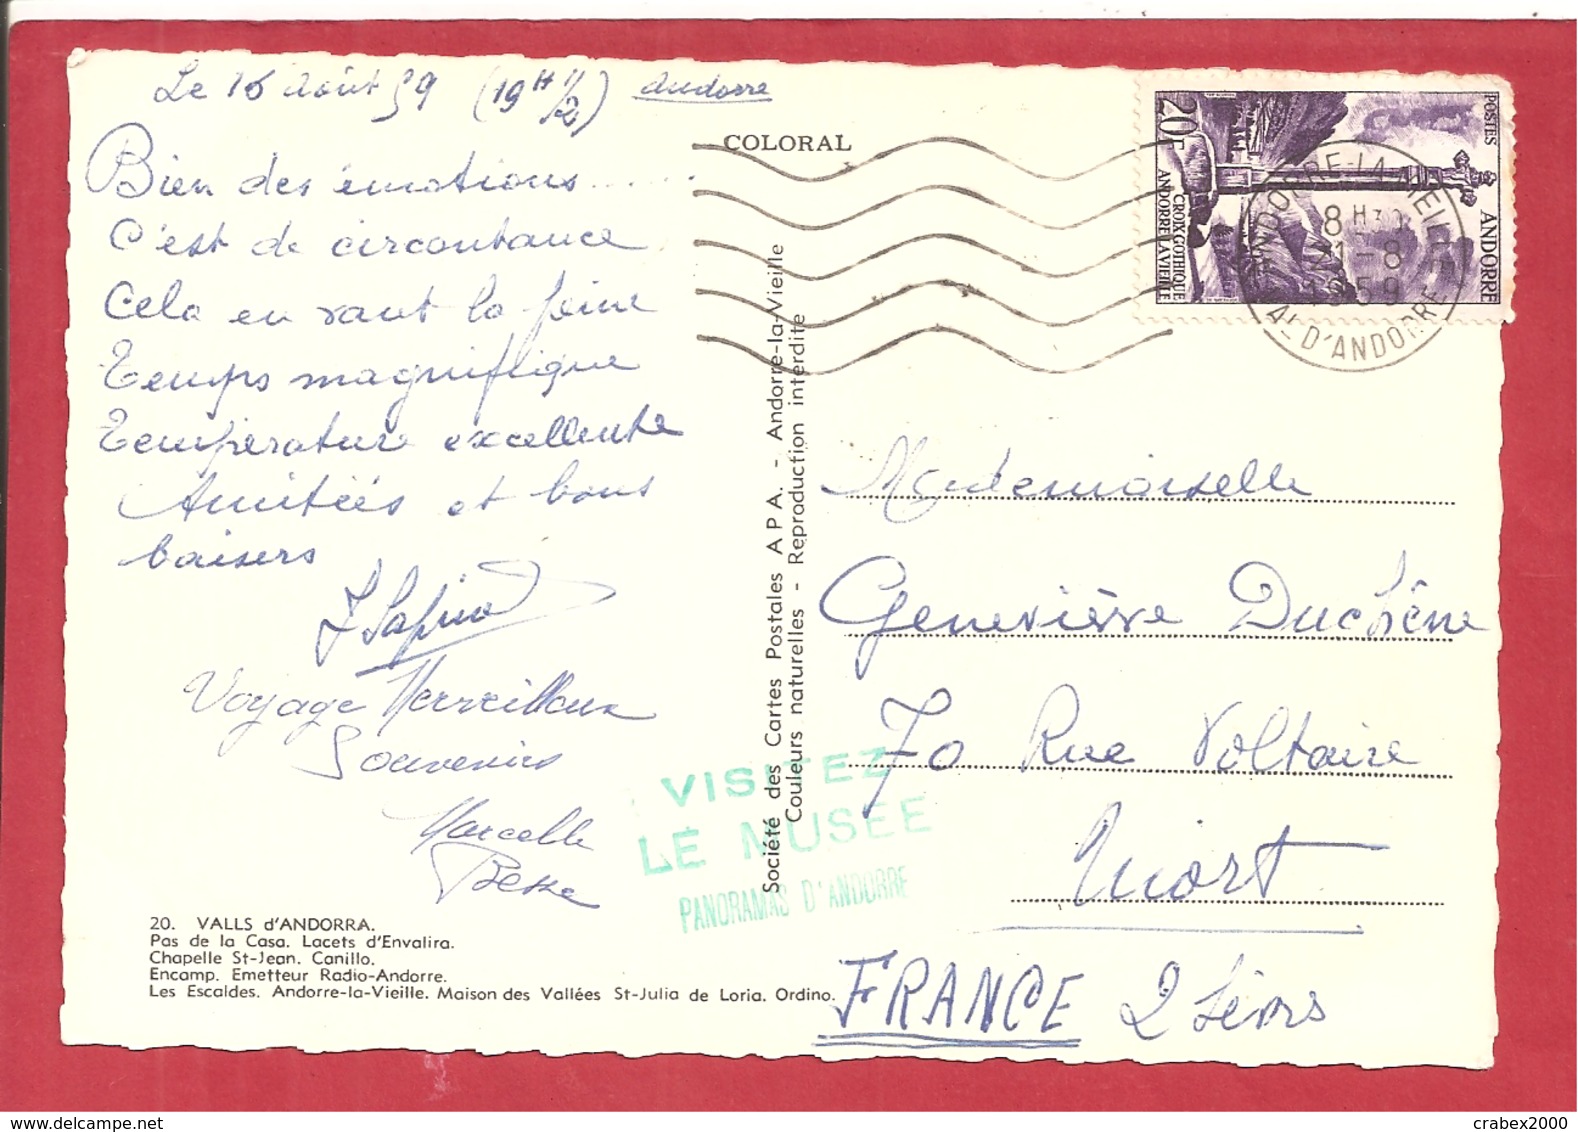 Le 16 août 59 (19H 1/2) Andorre
Bien des émotions.....
C'est de circontance
Cela en vaut la peine
Temps magnifique
Température excellente
Amitiés et bons
baisers
Voyage Merveilleux
Souvenirs
Marcelle
Besse
20. VALLS d'ANDORRA.
Pas de la Casa. Lacets d'Envalira.
Chapelle St-Jean. Canillo.
Encamp. Emetteur Radio-Andorre.
Les Escaldes. Andorre-la-Vieille. Maison des Vallées St-Julia de Loria. Ordino.
COLORAL
Société des Cartes Postales A P A. - Andorre-la-Vieille
Couleurs naturelles - Reproduction interdite
VISITEZ
LE MUSEE
PANORAMAS D'ANDORRE
POSTES ANDORRE
20F
CROIX GOTHIQUE
ANDORRE LA VIEILLE
ANDORRE-LA-VIEILLE
8H30
21-8
1959
VAL D'ANDORRE
Mademoiselle
Geneviève Duchêne
70 Rue Voltaire
Niort
FRANCE 2 Sèvres
crabex2000